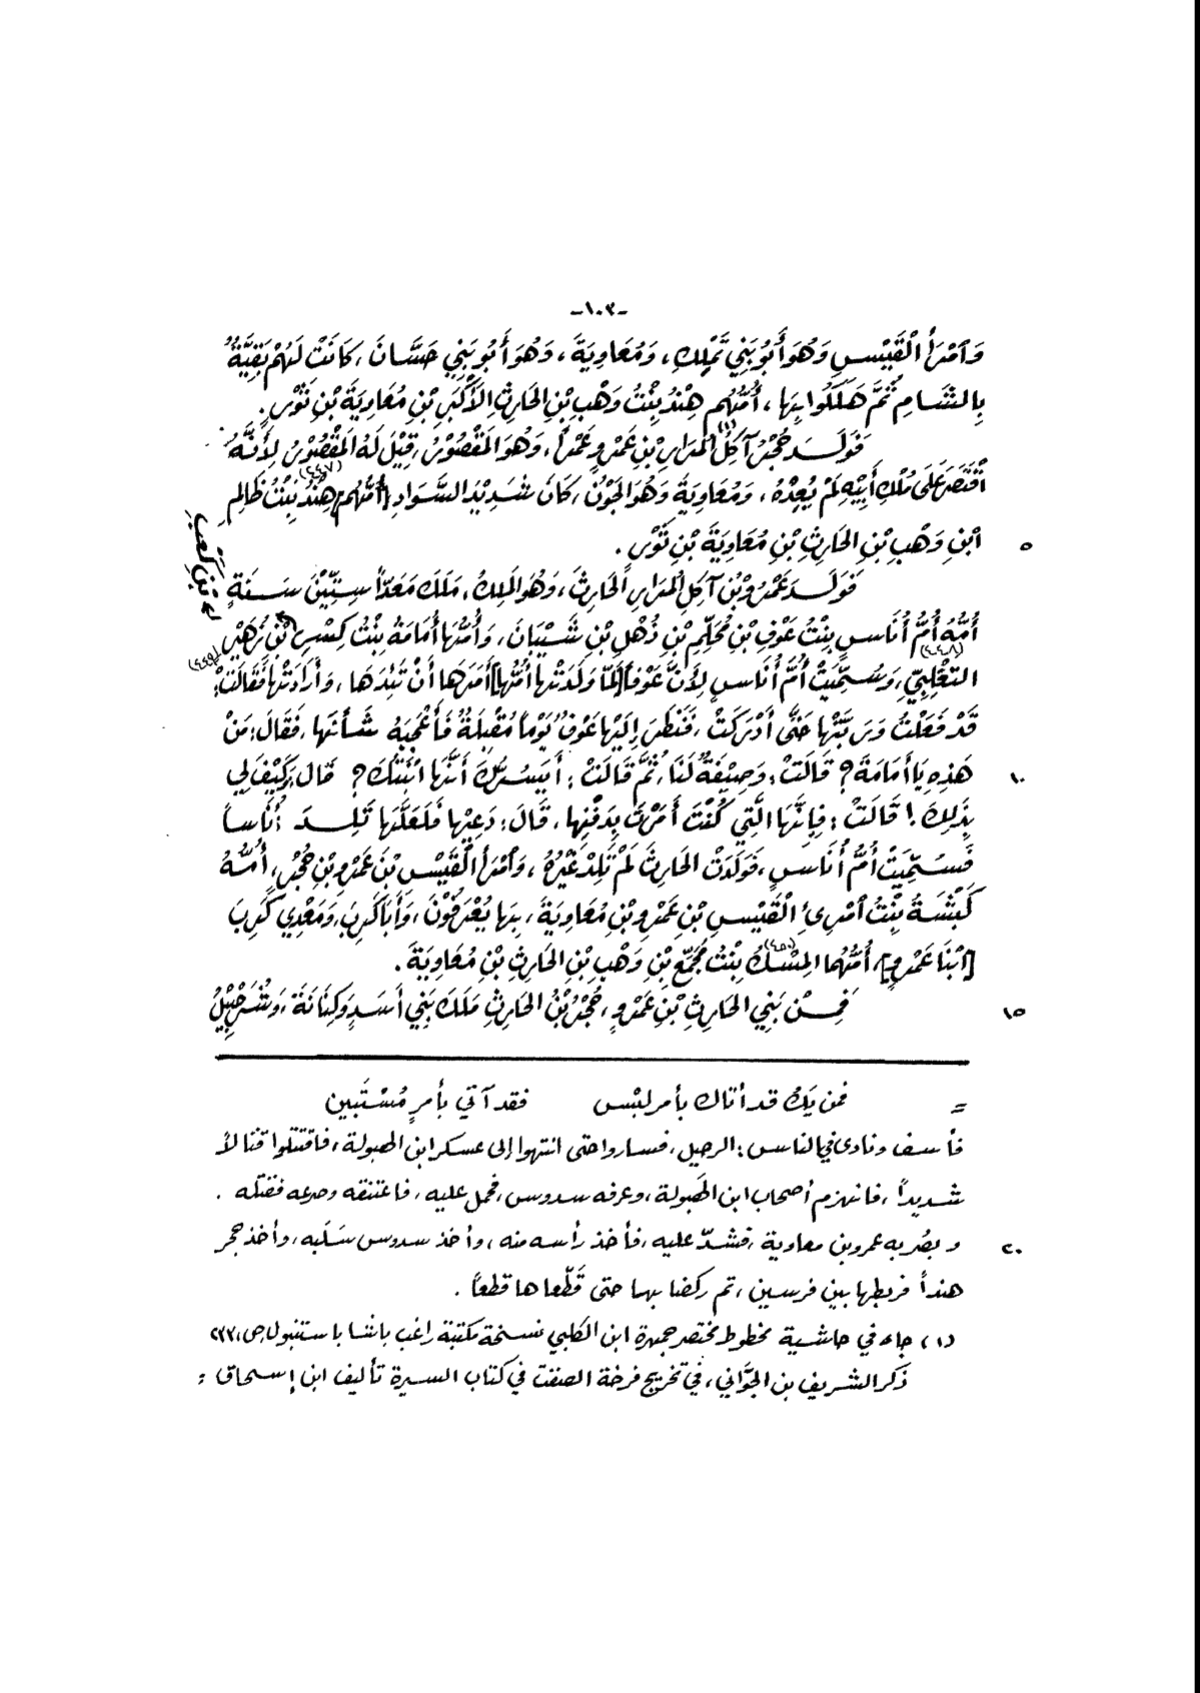 -١٠٣-
وَٱمْرَأُ الْقَيْسِ وَهُوَ أَبُو بَنِي تَمْلِكَ، وَمُعَاوِيَةَ، وَهُوَ أَبُو بَنِي حَسَّانَ، كَانَتْ لَهُمْ بَقِيَّةٌ
بِالشَّامِ ثُمَّ هَلَكُوا بِهَا، أُمُّهُم هِنْدُ بِنْتُ وَهْبِ بْنِ الحَارِثِ الأَكْبَرِ بْنِ مُعَاوِيَةَ بْنِ ثَوْرٍ.
فَوَلَدَ حُجْرُ آكِلُ المُرَارِ (١) بْنِ عَمْرٍو عَمْراً، وَهُوَ المَقْصُورُ، قِيْلَ لَهُ المَقْصُورُ لِأَنَّهُ
ٱقْتَصَرَ عَلَى مُلْكِ أَبِيْهِ لَمْ يُعِدْهُ، وَمُعَاوِيَةَ وَهُوَ الجَوْنُ، كَانَ شَدِيْدَ السَّوَادِ [أُمُّهُم] (٤٤٧) هِنْدُ بِنْتُ ظَالِمِ
ٱبْنِ وَهْبِ بْنِ الحَارِثِ بْنِ مُعَاوِيَةَ بْنِ ثَوْرٍ.
٥
فَوَلَدَ عَمْرُو بْنُ آكِلِ المُرَارِ الحَارِثَ، وَهُوَ المَلِكُ، مَلَكَ مَعَدّاً سِتِّيْنَ سَنَةٍ
أُمُّهُ أُمُّ أُنَاسٍ (٤٤٨) بِنْتُ عَوْفِ بْنِ مُحَلِّمِ بْنِ ذُهْلِ بْنِ شَيْبَانَ، وَأُمُّهَا أُمَامَةُ بِنْتُ كِسْرِ بْنِ زُهَيْرٍ
بْنِ كَعْبِ
التَّغْلِبِيِّ، وَسُمِّيَتْ أُمَّ أُنَاسٍ لِأَنَّ عَوْفاً [لمَّا وَلَدَتْهَا أُمُّهَا] أَمَرَهَا أَنْ تَئِدَهَا، وَأَرَادَتْهَا فَقَالَتْ: (٤٤٩)
قَدْ فَعَلْتُ وَرَبَّتْهَا حَتَّى أَدْرَكَتْ، فَنَظَرَ إِلَيْهَا عَوْفٌ يَوْماً مُقْبِلَةً فَأَعْجَبَهُ شَأْنُهَا، فَقَالَ: مَنْ
هَذِهِ يَا أُمَامَةَ؟ قَالَتْ: وَصِيْفَةٌ لَنَا، ثُمَّ قَالَتْ: أَيَسُرُّكَ أَنَّهَا ٱبْنَتُكَ؟ قَالَ: وَكَيْفَ لِي
١٠
بِذَلِكَ! قَالَتْ: فَإِنَّهَا الَّتِي كُنْتَ أَمَرْتَ بِدَفْنِهَا، قَالَ: دَعِيْهَا فَلَعَلَّهَا تَلِدُ أُنَاساً
فَسُمِّيَتْ أُمَّ أُنَاسٍ، فَوَلَدَتْ الحَارِثَ لَمْ تَلِدْ غَيْرَهُ، وَٱمْرَأَ الْقَيْسِ بْنَ عَمْرِو بْنِ حُجْرٍ، أُمُّهُ
كَبْشَةُ بِنْتُ ٱمْرِئِ الْقَيْسِ بْنِ عَمْرِو بْنِ مُعَاوِيَةَ، بِهَا يُعْرَفُوْنَ، وَأَبَا كَرِبَ، وَمَعْدِي كَرِبَ
[ابْنَا عَمْرٍو]، أُمُّهُمَا المِسْكُ (٤٥٠) بِنْتُ مُجَمِّعِ بْنِ وَهْبِ بْنِ الحَارِثِ بْنِ مُعَاوِيَةَ.
فَمِنْ بَنِي الحَارِثِ بْنِ عَمْرٍو، حُجْرُ بْنُ الحَارِثِ مَلَكَ بَنِي أَسَدٍ وَكِنَانَةَ، وَشُرَحْبِيْلُ
١٥
= فمن يَكُ قد أتاك بأمر لبْسٍ فقد آتي بأمرٍ مُسْتَبين
فأسف ونادى في الناس: الرحيل، فساروا حتى انتهوا إلى عسكر ابن الهبولة، فاقتتلوا قتالاً
شديداً، فانهزم أصحاب ابن الهَبولة، وعرفه سدوس، فحمل عليه، فاعتنقه وصرعه فقتله.
وبصُر به عمرو بن معاوية، فشدّ عليه، فأخذ رأسه منه، وأخذ سدوس سَلَبه، وأخذ حجر
٢٠
هنداً فربطها بين فرسين، ثم ركضا بها حتى قَطّعاها قطعاً.
(١) جاء في حاشية مخطوط مختصر جمهرة ابن الكلبي نسخة مكتبة راغب باشا باستنبول ص، ٢٣٧
ذكر الشريف بن الجَوَّاني، في تخريج فرخة الصنفت في كتاب السيرة تأليف ابن إسحاق: